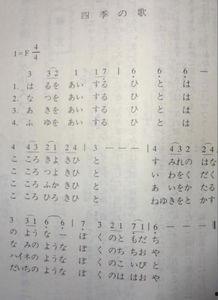 四季の歌
1=F 4/4
3 32 1 17 | 6 6 6 — |
1. はるを あい する ひ と は
2. なつを あい する ひ と は
3. あきを あい する ひ と は
4. ふゆを あい する ひ と は
4 43 21 23 | 3 — — — | 4 432 2 24 |
こ ころ きよ きひ と す みれの はな
こ ころ つよ きひ と い わをく だく
こ ころ ふか きひ と あ いをか たる
こ ころ ひろ きひ と ねゆきをと かす
3 31 6 6 | 7 3 21 71 | 6 — — — |
の ような ー ぼ くのと もだ ち
なみの ような ぼ くのち ちお や
ハイネの ような ぼ くのこ いび と
だいちの ような ぼ くのは はお や